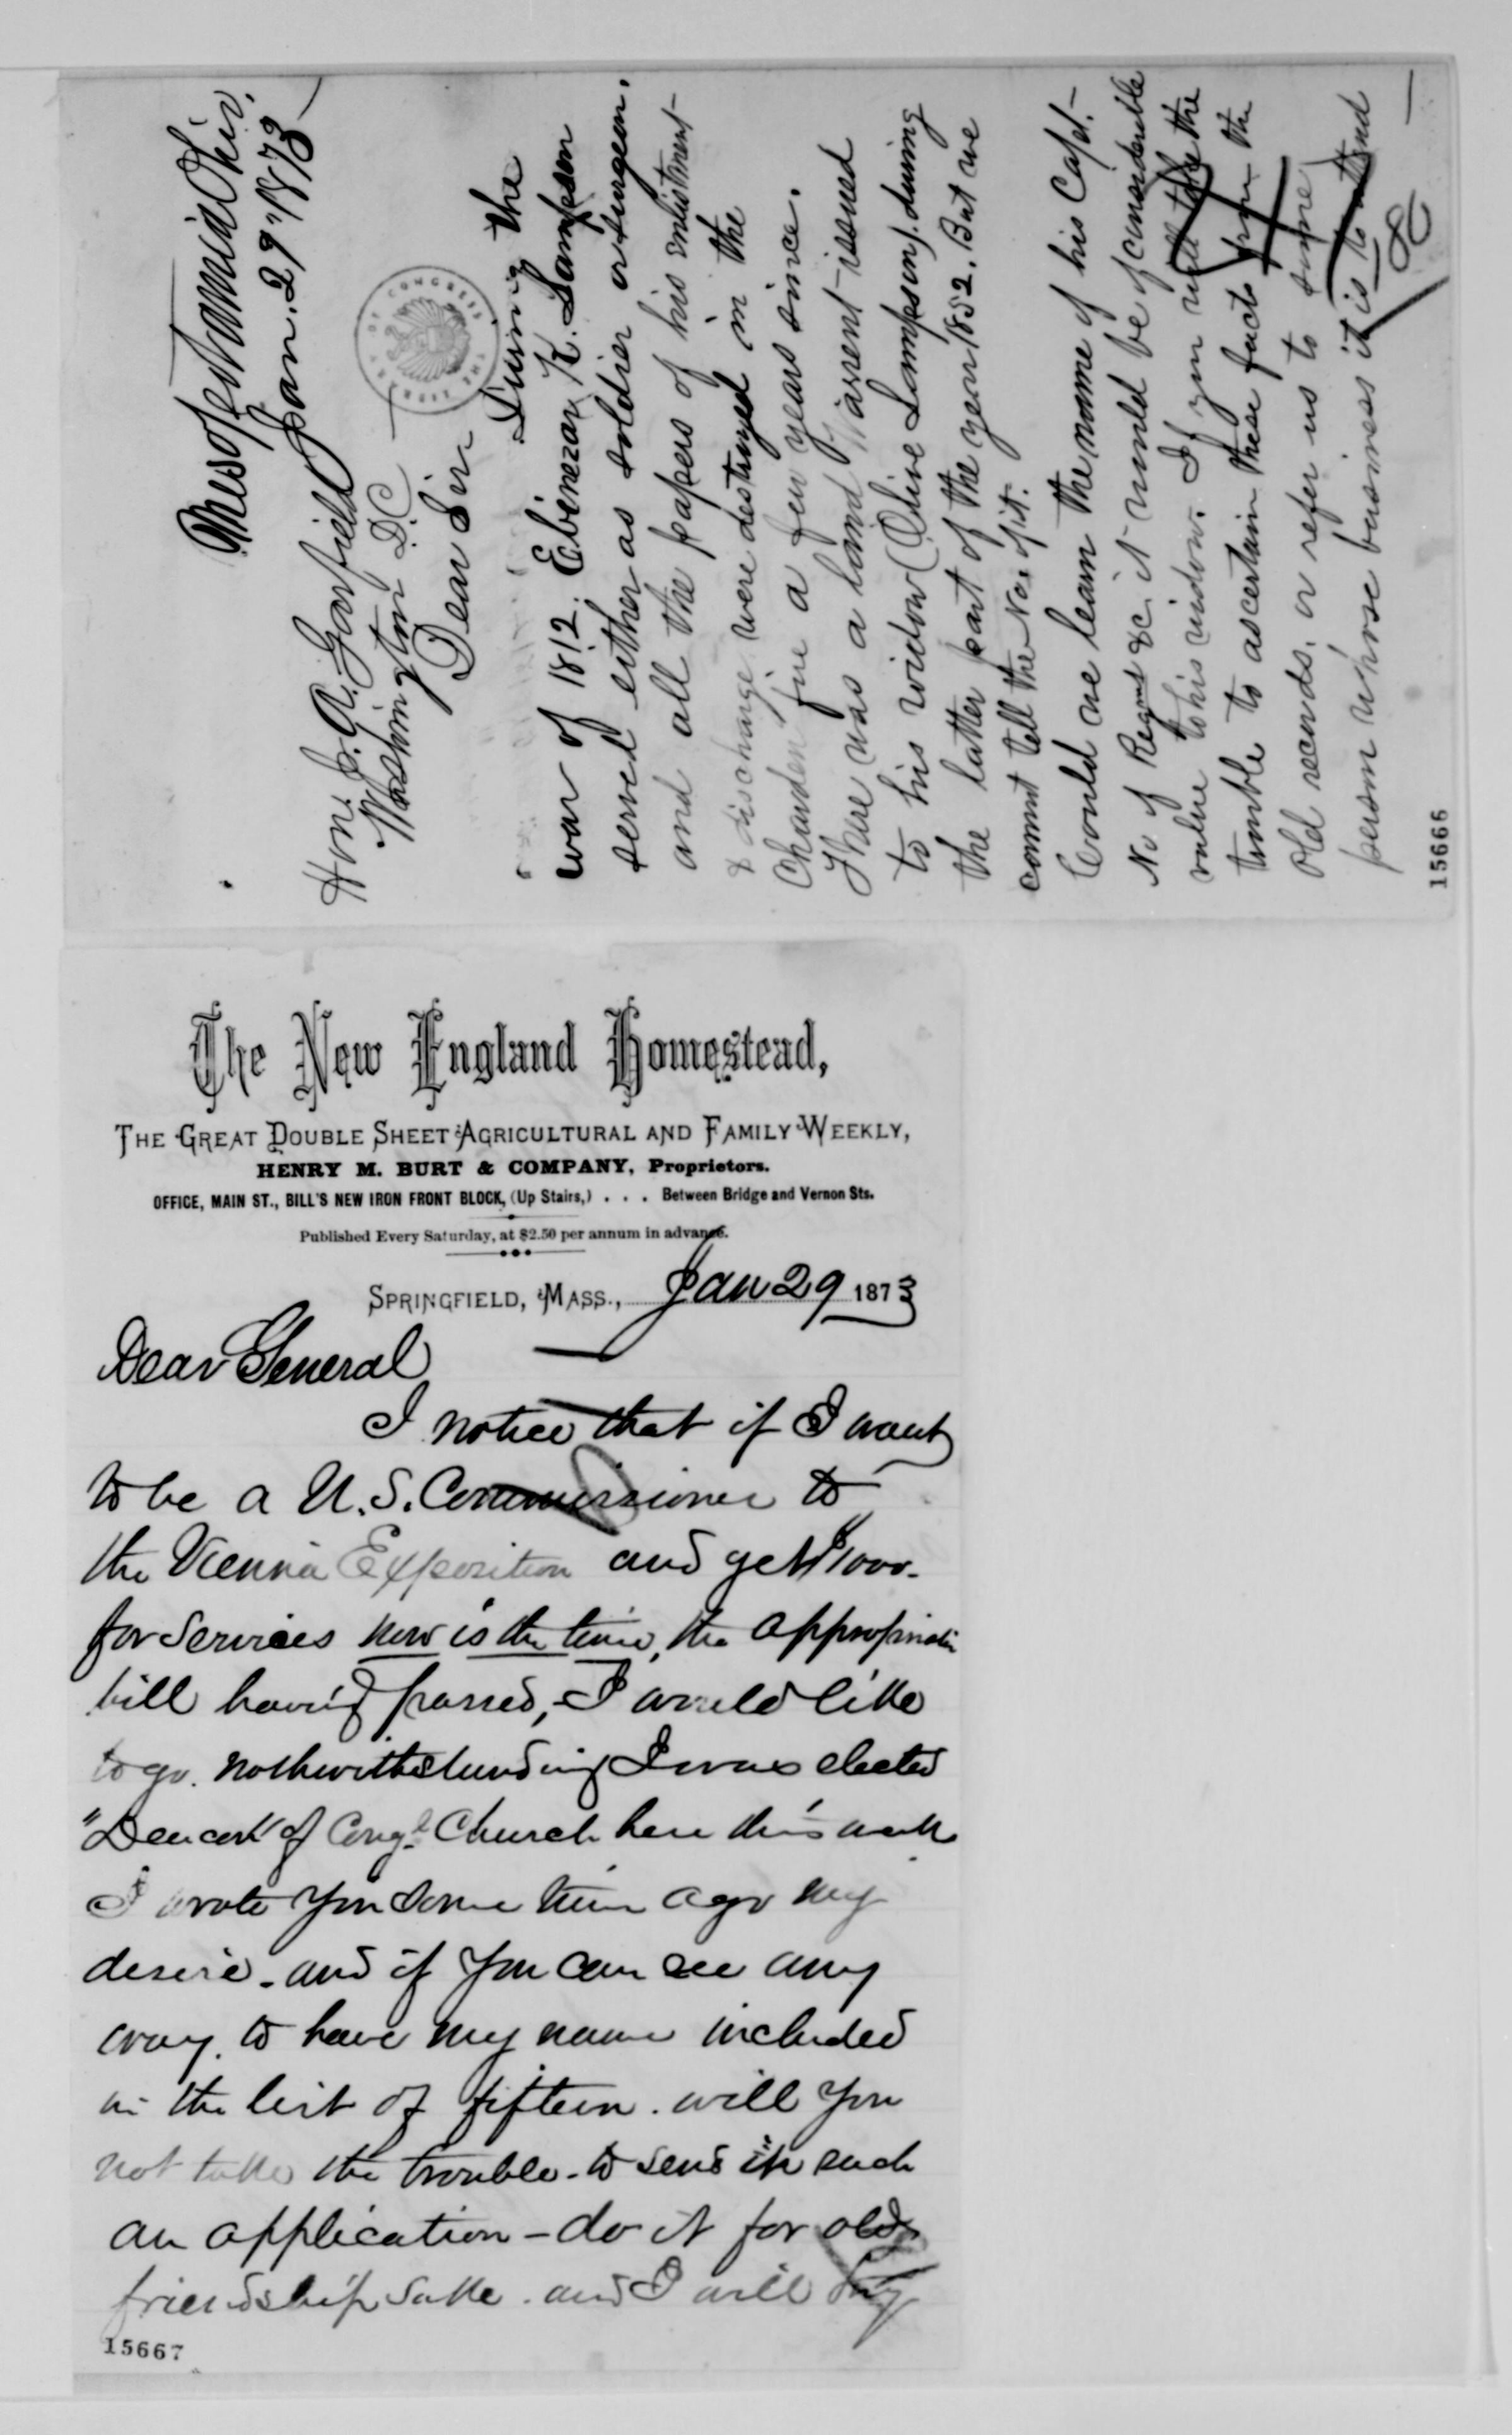 Mesopotamia Ohio.
Jan. 29" 1873
Hon. J. A. Garfield
Washington D.C.
Dear Sir
During the
war of 1812. Ebenezar K. Lampson
served either as soldier or surgeon.
and all the papers of his enlistment
& discharge were destroyed in the
Chardon fire a few years since.
There was a land Warrent issued
to his widow (Olive Lampson). during
the latter part of the year 1852. But we
cannot tell the No. of it.
Could we learn the name of his Capt.
No of Regmt &c. it would be of considerable
value to his widow. If you will take the
trouble to ascertain these facts from the
old records, or refer us to some
person whose business it is to attend
15666
LIBRARY OF CONGRESS
The New England Homestead,
The Great Double Sheet Agricultural and Family Weekly,
HENRY M. BURT & COMPANY, Proprietors.
OFFICE, MAIN ST., BILL'S NEW IRON FRONT BLOCK, (Up Stairs,) . . . Between Bridge and Vernon Sts.
Published Every Saturday, at $2.50 per annum in advance.
Springfield, Mass., Jan 29 1873
Dear General
I notice that if I want
to be a U.S. Commissioner to
the Vienna Exposition and get $1000.
for services now is the time, the appropriation
bill having passed, I would like
to go. nothwithstanding I was elected
"Deacon" of Congl. Church here this week
I wrote you some time ago my
desire. and if you can see any
way. to have my name included
in the list of fifteen. will you
not take the trouble. to send in such
an application - do it for old
friendship sake. and I will
15667